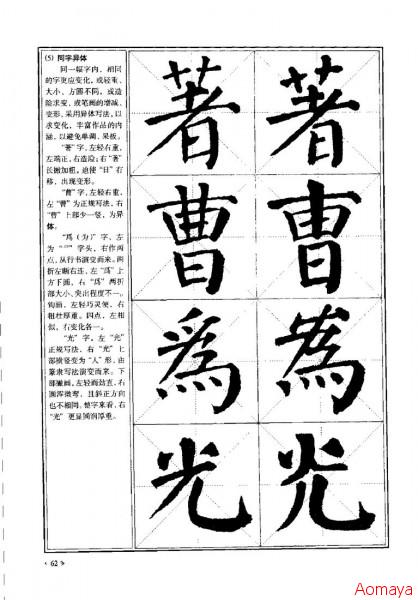 (5) 同字异体
同一幅字内，相同
的字更应变化，或轻重、
大小、方圆不同，或造
险求变，或笔画的增减、
变形，采用异体写法，以
求变化，丰富作品的内
涵，以避免单调、呆板。
“著”字，左轻右重，
左端正，右造险；右“著”
长撇加粗，迫使“日”右
移，出现变形。
“曹”字，左轻右重，
左“曹”为正规写法，右
“曹”上部少一竖，为异
体。
“爲（为）”字，左
为“爫”字头，右作两
点，从行书演变而来。两
折左断右连，左“爲”上
方下圆，右“爲”两折
部大小、突出程度不一。
钩画，左轻巧灵便，右
粗壮厚重。四点，左相
似，右变化各一。
“光”字，左“光”
正规写法，右“光”上
部横竖变为“人”形，由
篆隶写法演变而来。下
部撇画，左轻而劲直，右
圆浑微弯，且斜正方向
也不相同。整字来看，右
“光”更显圆润厚重。
著 著
曹 曺
爲 為
光 光
< 62 >
Aomaya